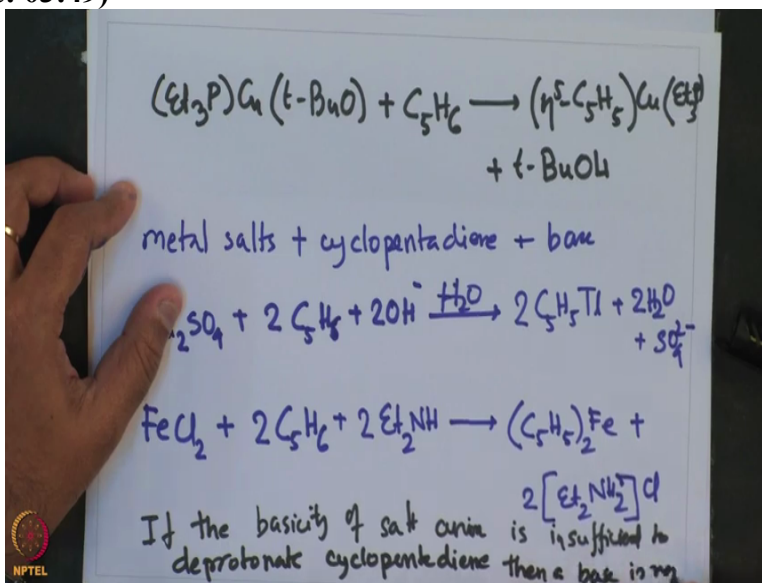 03:49)
(Et₃P)Cu(t-BuO) + C₅H₆ ⟶ (η⁵-C₅H₅)Cu(Et₃P)
+ t-BuOH
metal salts + cyclopentadiene + base
₂SO₄ + 2C₅H₆ + 2OH⁻ —H₂O→ 2C₅H₅Tl + 2H₂O
+ SO₄²⁻
FeCl₂ + 2C₅H₆ + 2Et₂NH ⟶ (C₅H₅)₂Fe +
2[Et₂NH₂]Cl
If the basicity of salt anion is insufficient to
deprotonate cyclopentediene then a base is
NPTEL